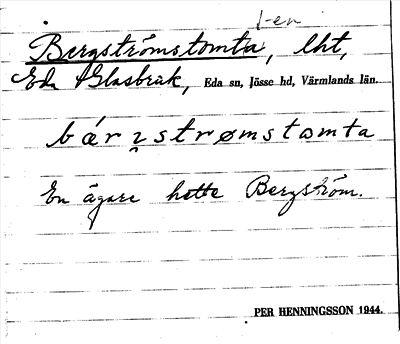 1-en
Bergströmstomta, lht,
Eda Glasbruk, Eda sn, Jösse hd, Värmlands län.
bærʒstrømstomta
En ägare hette Bergström.
PER HENNINGSSON 1944.